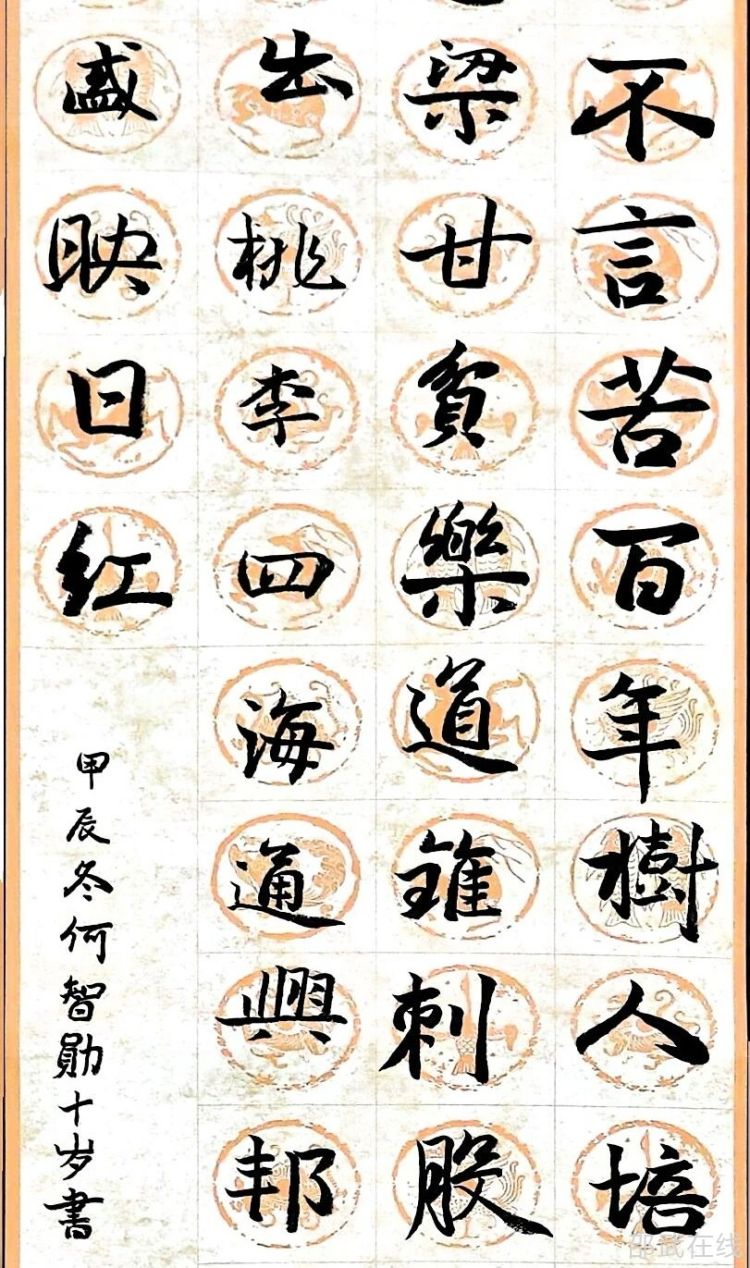 不言苦百年樹人培
梁甘貧樂道錐刺股
出桃李四海通興邦
盛映日红
甲辰冬何智勛十岁書
邵武在线